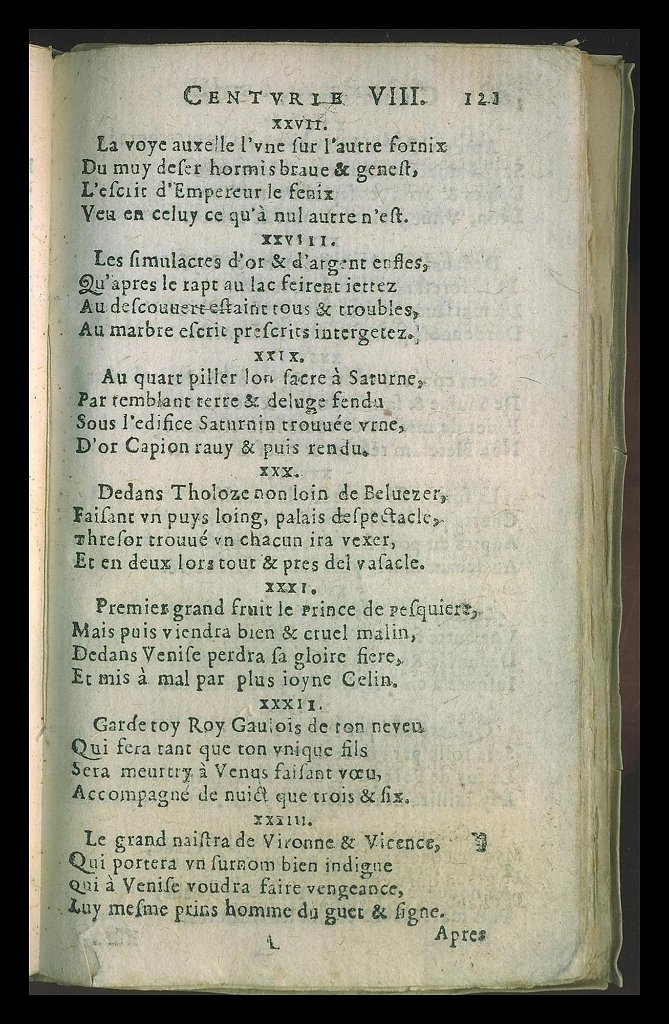 CENTVRIE VIII. 121
XXVII.
La voye auxelle l'vne sur l'autre fornix
Du muy deser hormis braue & genest,
L'escrit d'Empereur le fenix
Veu en celuy ce qu'à nul autre n'est.
XXVIII.
Les simulacres d'or & d'argent enfles,
Qu'apres le rapt au lac feirent iettez
Au descouuert estaint tous & troubles,
Au marbre escrit prescrits intergetez.
XXIX.
Au quart piller lon sacre à Saturne,
Par tremblant terre & deluge fendu
Sous l'edifice Saturnin trouuée vrne,
D'or Capion rauy & puis rendu.
XXX.
Dedans Tholoze non loin de Beluezer,
Faisant vn puys loing, palais despectacle,
Thresor trouué vn chacun ira vexer,
Et en deux lors tout & pres del vasacle.
XXXI.
Premier grand fruit le Prince de Pesquiere,
Mais puis viendra bien & cruel malin,
Dedans Venise perdra sa gloire fiere,
Et mis à mal par plus ioyne Celin.
XXXII.
Garde toy Roy Gaulois de ton neveu
Qui fera tant que ton vnique fils
Sera meurtry à Venus faisant vœu,
Accompagné de nuict que trois & six.
XXXIII.
Le grand naistra de Vironne & Vicence,
Qui portera vn surnom bien indigne
Qui à Venise voudra faire vengeance,
Luy mesme prins homme du guet & signe.
L Apres